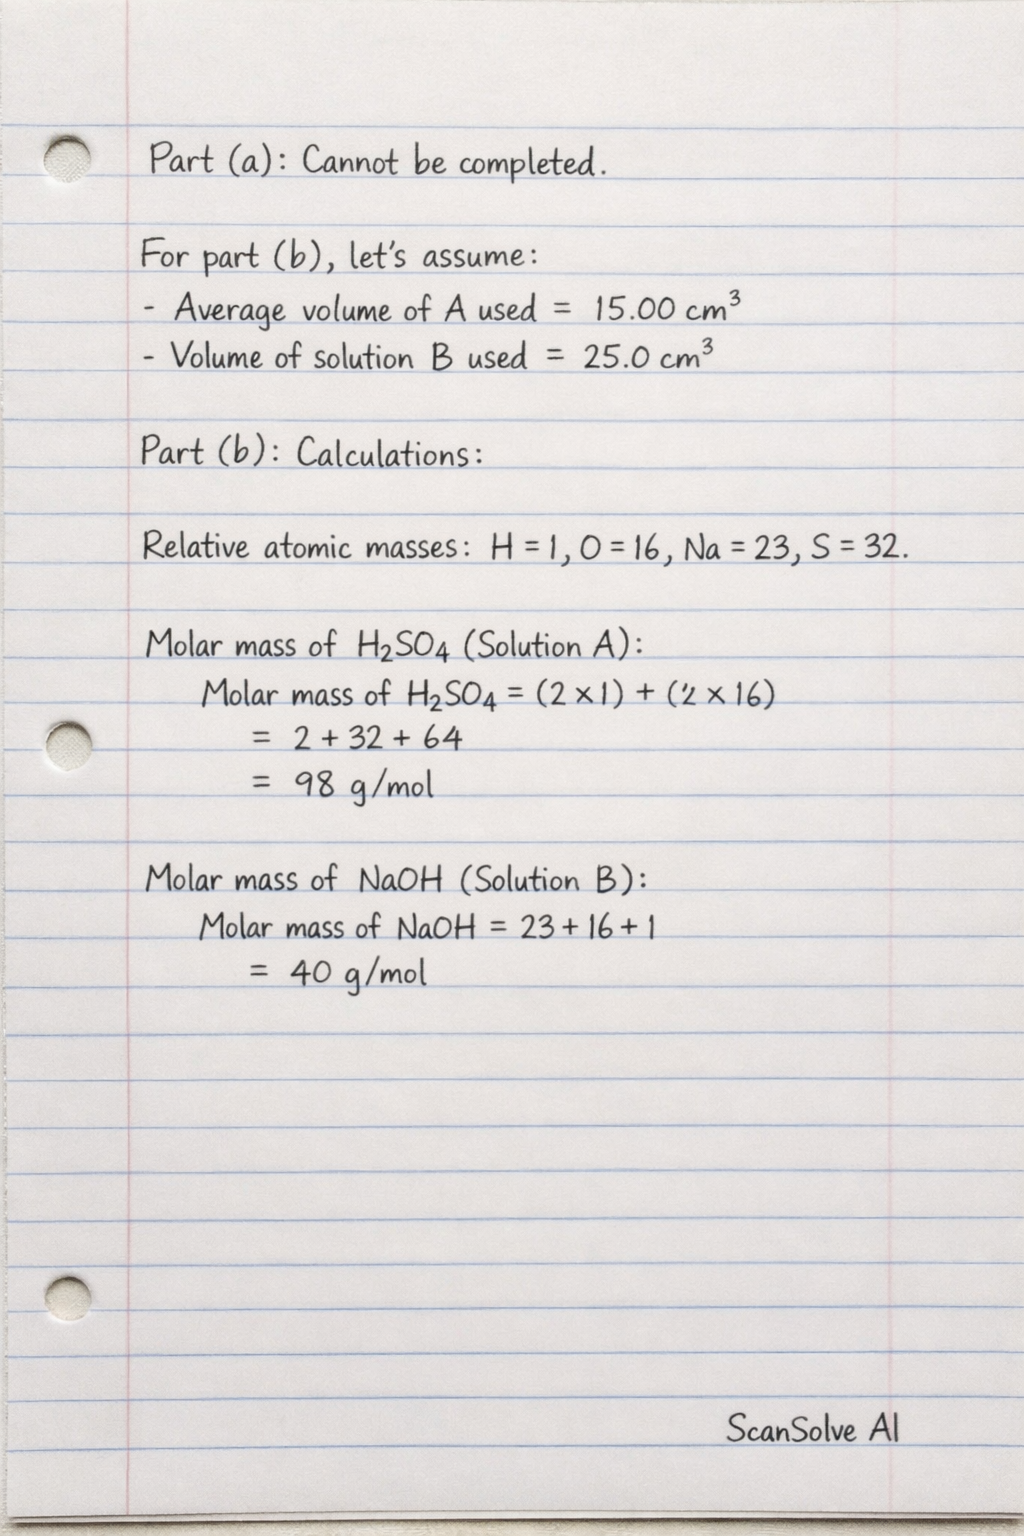 Part (a): Cannot be completed.
For part (b), let's assume:
- Average volume of A used = 15.00 cm³
- Volume of solution B used = 25.0 cm³
Part (b): Calculations:
Relative atomic masses: H = 1, O = 16, Na = 23, S = 32.
Molar mass of H₂SO₄ (Solution A):
Molar mass of H₂SO₄ = (2 × 1) + (2 × 16)
= 2 + 32 + 64
= 98 g/mol
Molar mass of NaOH (Solution B):
Molar mass of NaOH = 23 + 16 + 1
= 40 g/mol
ScanSolve AI